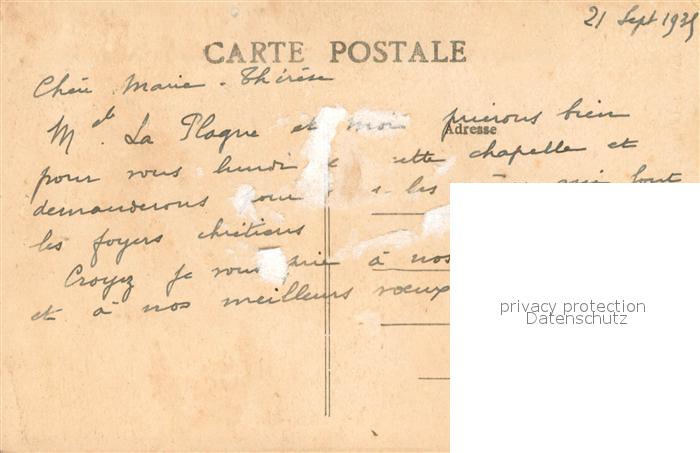 21 Sept 1935
CARTE POSTALE
Chère Marie-Thérèse
Mde La Plagne et moi prierons bien
Adresse
pour vous lundi cette chapelle et
demanderons pour les qui font
les foyers chrétiens
Croyez je vous prie à nos
et à nos meilleurs vœux
privacy protection
Datenschutz